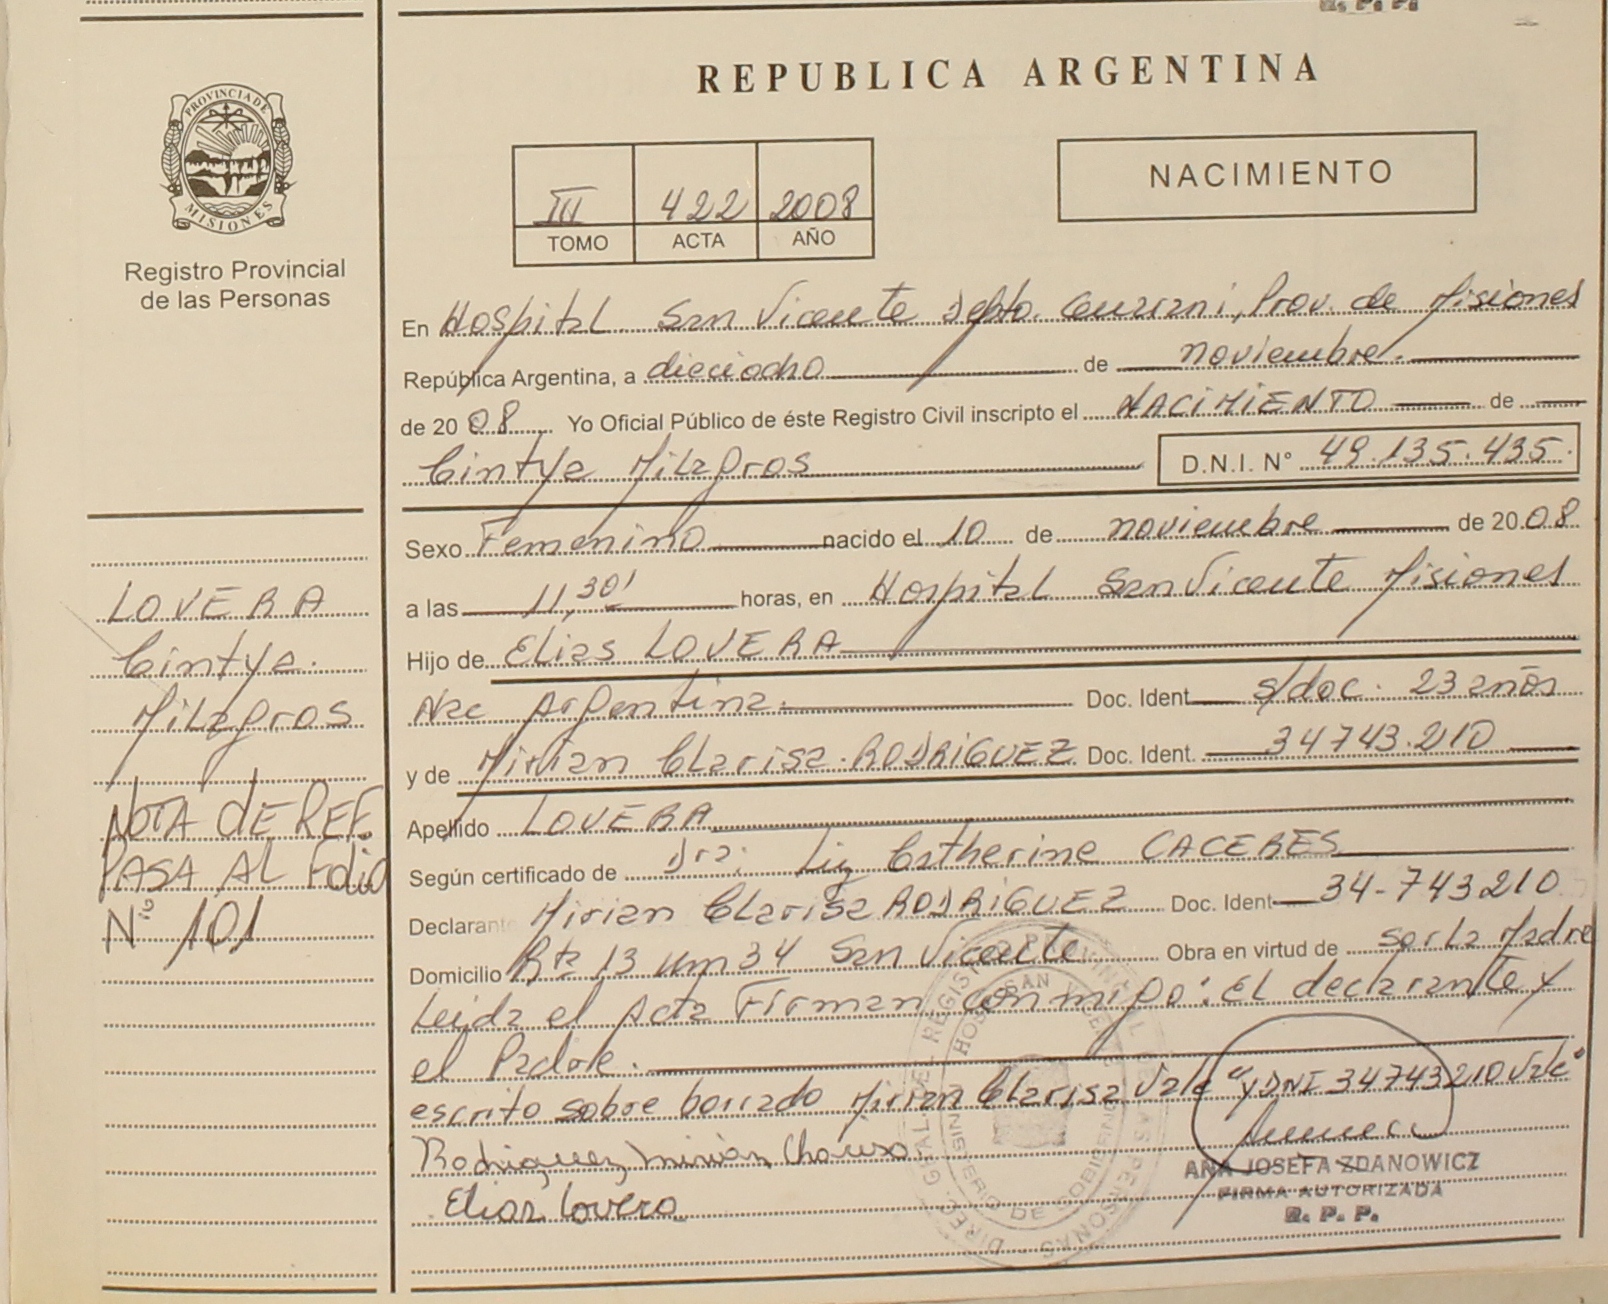 R. P. P.
REPUBLICA ARGENTINA
PROVINCIA DE
MISIONES
Registro Provincial
de las Personas
III 422 2008
TOMO ACTA AÑO
NACIMIENTO
En Hospital San Vicente Depto. Guarani, Prov. de Misiones
República Argentina, a dieciocho de noviembre.
de 2008 Yo Oficial Público de éste Registro Civil inscripto el NACIMIENTO de
Cintya Milagros D.N.I. N° 49.135.435.
Sexo Femenino nacido el 10 de noviembre de 2008
a las 11,30' horas, en Hospital San Vicente Misiones
Hijo de Elias LOVERA
Nac Argentina. Doc. Ident. s/doc. 23 años
y de Mirian Clarisa RODRIGUEZ Doc. Ident. 34743.210
Apellido LOVERA
Según certificado de Dra: Liz Catherine CACERES
Declarante Mirian Clarisa RODRIGUEZ Doc. Ident 34-743210
Domicilio Rta 13 km 34 San Vicente Obra en virtud de ser la Madre
Leida el Acta Firman conmigo: El declarante y
el Padre.
escrito sobre borrado Mirian Clarisa Vale "y DNI 34743210 Vale"
Rodriguez, Mirian
Elias Lovera
ANA JOSEFA ZDANOWICZ
FIRMA AUTORIZADA
R. P. P.
LOVERA
Cintya
Milagros
NOTA DE REF.
PASA AL FOLIO
N° 101
DIREC. GRAL. DEL REGISTRO PROVINCIAL DE LAS PERSONAS
HOSP. SAN VICENTE
MINISTERIO DE GOBIERNO